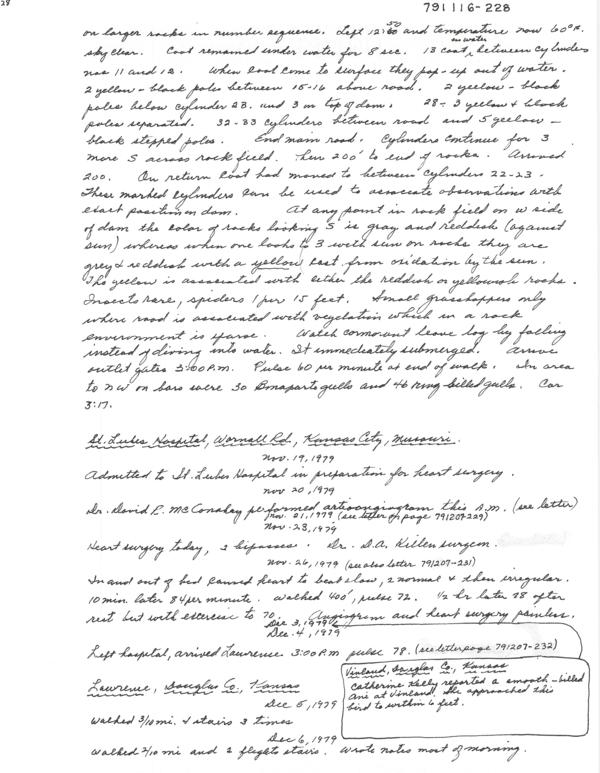 28
791116-228
on larger rocks in number sequence. Left 12:50 and temperature now 60°F.
sky clear. Coot remained under water for 8 sec. 13 coot in water between cylinders
nos 11 and 12. When coot come to surface they pop-up out of water.
2 yellow-black poles between 15-16 above road. 2 yellow-black
poles below cylinder 23. and 3 on top of dam. 28- 3 yellow & black
poles separated. 32-33 cylinders between road and 5 yellow-
black stepped poles. End main road. Cylinders continue for 3
more S across rock field. Then 200' to end of rocks. Arrived
200. On return coot had moved to between cylinders 22-23.
These marked cylinders can be used to associate observations with
exact position on dam. At any point in rock field on W side
of dam the color of rocks looking S is gray and reddish (against
sun) whereas when one looks to with sun on rocks they are
grey & reddish with a yellow cast from oxidation by the sun.
The yellow is associated with either the reddish or yellowish rocks.
Insects rare, spiders 1 per 15 feet. Small grasshoppers only
where road is associated with vegetation which in a rock
environment is sparse. Watch cormorant leave log by falling
instead of diving into water. It immediately submerged. Arrive
outlet gates 3:00 P.M. Pulse 60 per minute at end of walk. In area
to NW on bars were 30 Bonaparte gulls and 46 ring-billed gulls. Car
3:17.
St. Lukes Hospital, Wornall Rd., Kansas City, Missouri.
Nov. 19, 1979
Admitted to St. Lukes Hospital in preparation for heart surgery.
Nov 20, 1979
Dr. David R. McConahay performed artioangiogram this A.M. (see letter)
Nov. 21, 1979 (see letter of page 791207-229)
Nov. 23, 1979
Heart surgery today, bipasses. Dr. D.A. Killen surgeon.
Nov. 26, 1979 (see also letter 791207-231)
In and out of bed caused heart to beat slow, 2 normal & then irregular.
10 min. later 84 per minute. Walked 400', pulse 72. 1/2 hr later 78 after
rest but with exercise to 70. Angiogram and heart surgery painless.
Dec 3, 1979
Dec. 4, 1979
Left hospital, arrived Lawrence 3:00 P.M. pulse 78. (see letter page 791207-232)
Vinland, Douglas Co., Kansas
Catherine Kelly reported a smooth-billed
Ani at Vinland. She approached this
bird to within 6 feet.
Lawrence, Douglas Co., Kansas
Dec 5, 1979
Walked 3/10 mi. & stairs 3 times
Dec 6, 1979
Walked 2/10 mi and 2 flights stairs. Wrote notes most of morning.